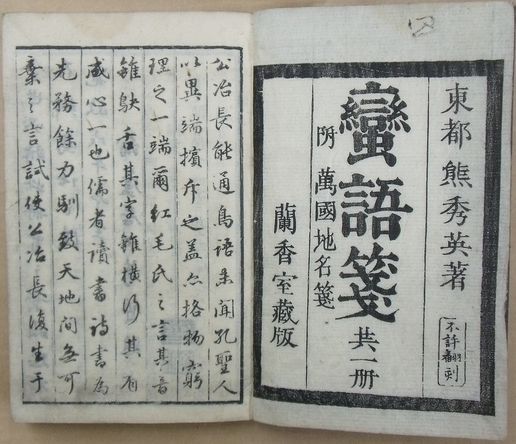 東都 熊秀英著
不許翻刻
蠻語箋 共一册
附 萬國地名箋
蘭香室藏版
公冶長能通鳥語未聞孔聖人
以異端擯斥之蓋亦格物窮
理之一端爾紅毛氏之言其音
雖鴃舌其字雖橫行其有
感心一也儒者讀書詩書為
先務餘力馴致天地間無可
棄之言試使公冶長復生于